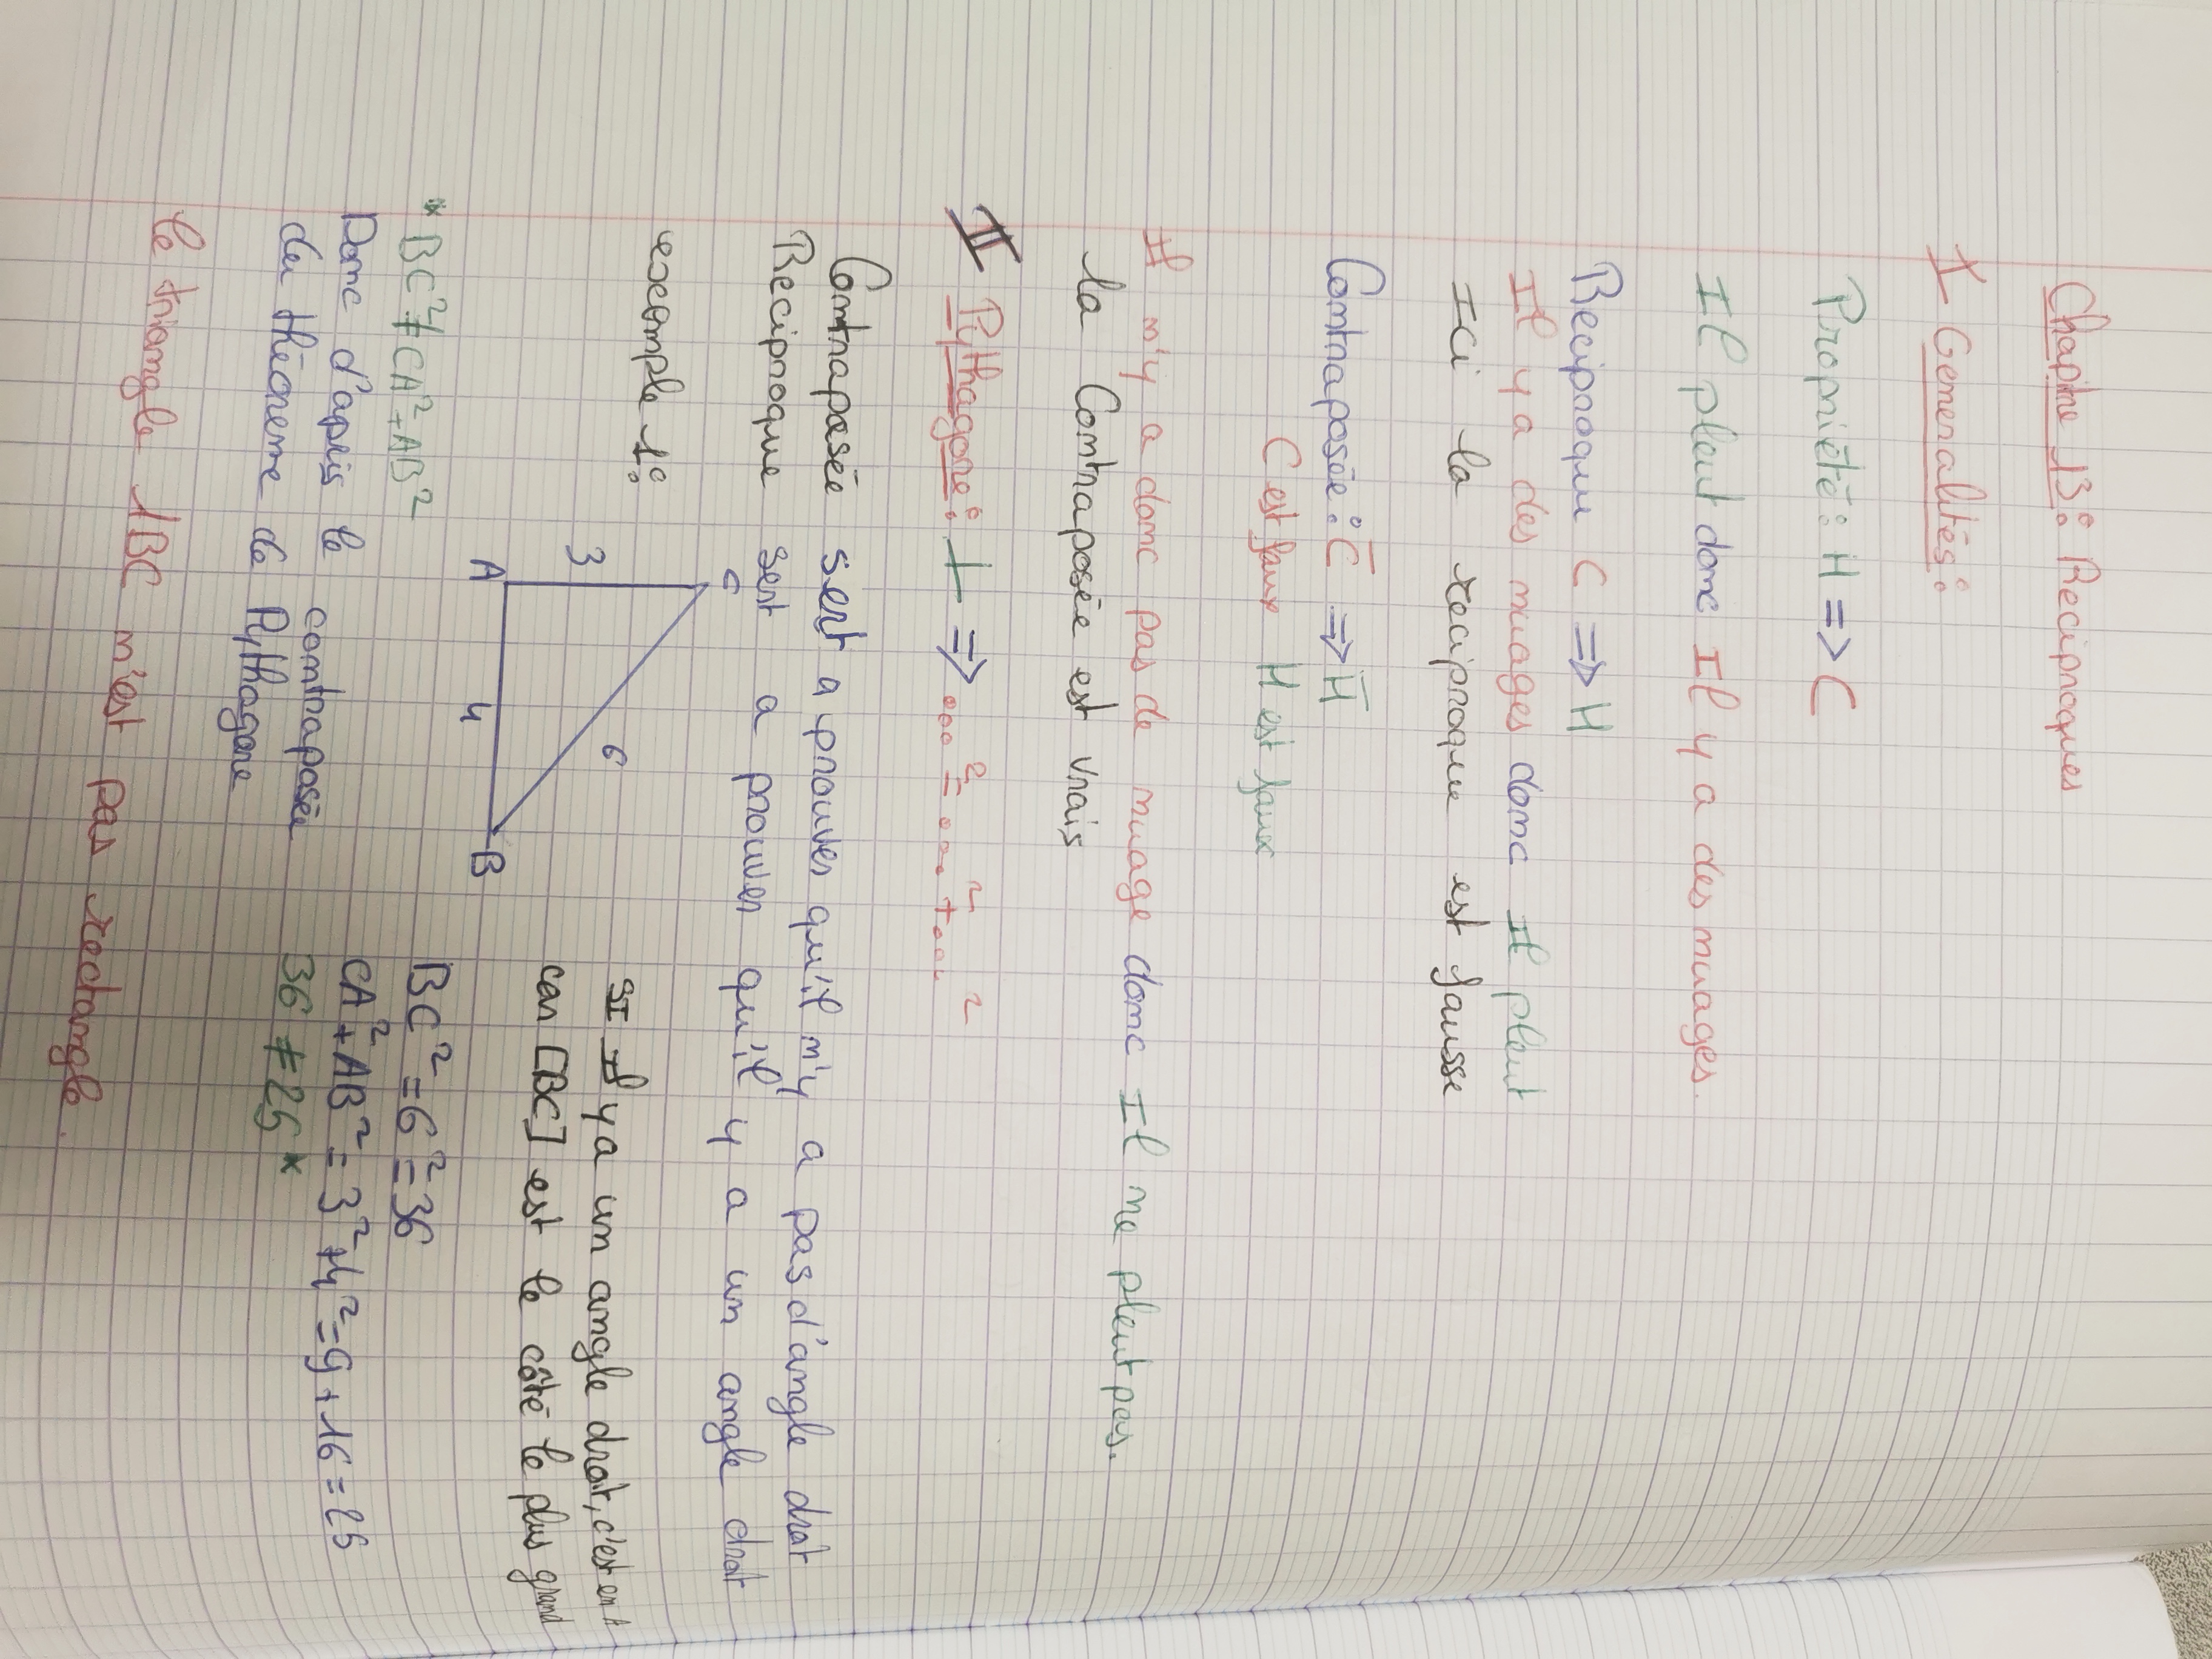 Chapitre 13: Reciproques
I Generalités:
Propriété: H => C
Il pleut donc Il y a des nuages.
Reciproque C => H
Il y a des nuages donc Il pleut
Ici la reciproque est fausse
Contraposée: C̄ => H̄
C est faux H est faux
Il n'y a donc pas de nuage donc Il ne pleut pas.
la Contraposée est vrais
II Pythagore: ⊥ => ...² = ...² + ...²
Contraposée sert a prouver qu'il n'y a pas d'angle droit
Reciproque sert a prouver qu'il y a un angle droit
exemple 1:
C
3
6
A
4
B
SI Il y a un angle droit, c'est en A
car [BC] est le côté le plus grand
BC² = 6² = 36
CA² + AB² = 3² + 4² = 9 + 16 = 25
36 ≠ 25 *
* BC² ≠ CA² + AB²
Donc d'après le contraposée
du théoreme de Pythagore
le triangle ABC n'est pas rectangle.